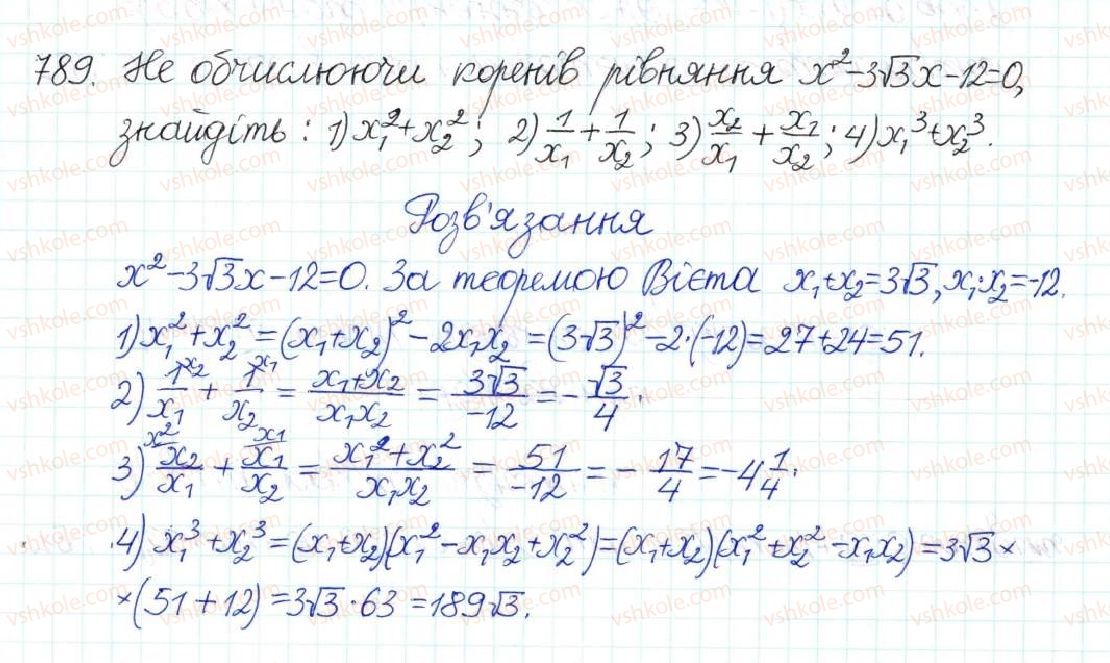 789. Не обчислюючи коренів рівняння x²-3√3x-12=0,
знайдіть: 1) x₁²+x₂²; 2) 1/x₁ + 1/x₂; 3) x₂/x₁ + x₁/x₂; 4) x₁³+x₂³.
Розв'язання
x²-3√3x-12=0. За теоремою Вієта x₁+x₂=3√3, x₁·x₂=-12.
1) x₁²+x₂²=(x₁+x₂)²-2x₁x₂=(3√3)²-2·(-12)=27+24=51.
2) 1^x₂/x₁ + 1^x₁/x₂ = x₁+x₂/x₁x₂ = 3√3/-12 = -√3/4.
3) x₂^x₂/x₁ + x₁^x₁/x₂ = x₁²+x₂²/x₁x₂ = 51/-12 = -17/4 = -4 1/4.
4) x₁³+x₂³=(x₁+x₂)(x₁²-x₁x₂+x₂²)=(x₁+x₂)(x₁²+x₂²-x₁x₂)=3√3×
×(51+12)=3√3·63=189√3.